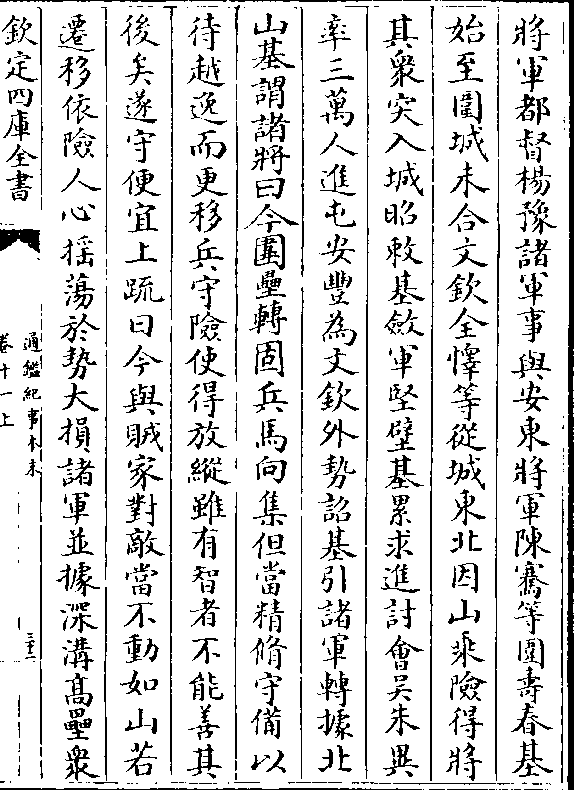 將軍都督楊豫諸軍事與安東將軍陳騫等圍壽春基
始至圍城未合文欽全懌等從城東北因山乘險得將
其衆突入城昭敕基斂軍堅壁基累求進討會吳朱異
率三萬人進屯安豐為文欽外勢詔基引諸軍轉據北
山基謂諸將曰今圍壘轉固兵馬向集但當精脩守備以
待越逸而更移兵守險使得放縱雖有智者不能善其
後矣遂守便宜上疏曰今與賊家對敵當不動如山若
遷移依險人心揺蕩於勢大損諸軍並據深溝髙壘衆
欽定四庫全書
通鑑紀事本末
卷十一上
三十二